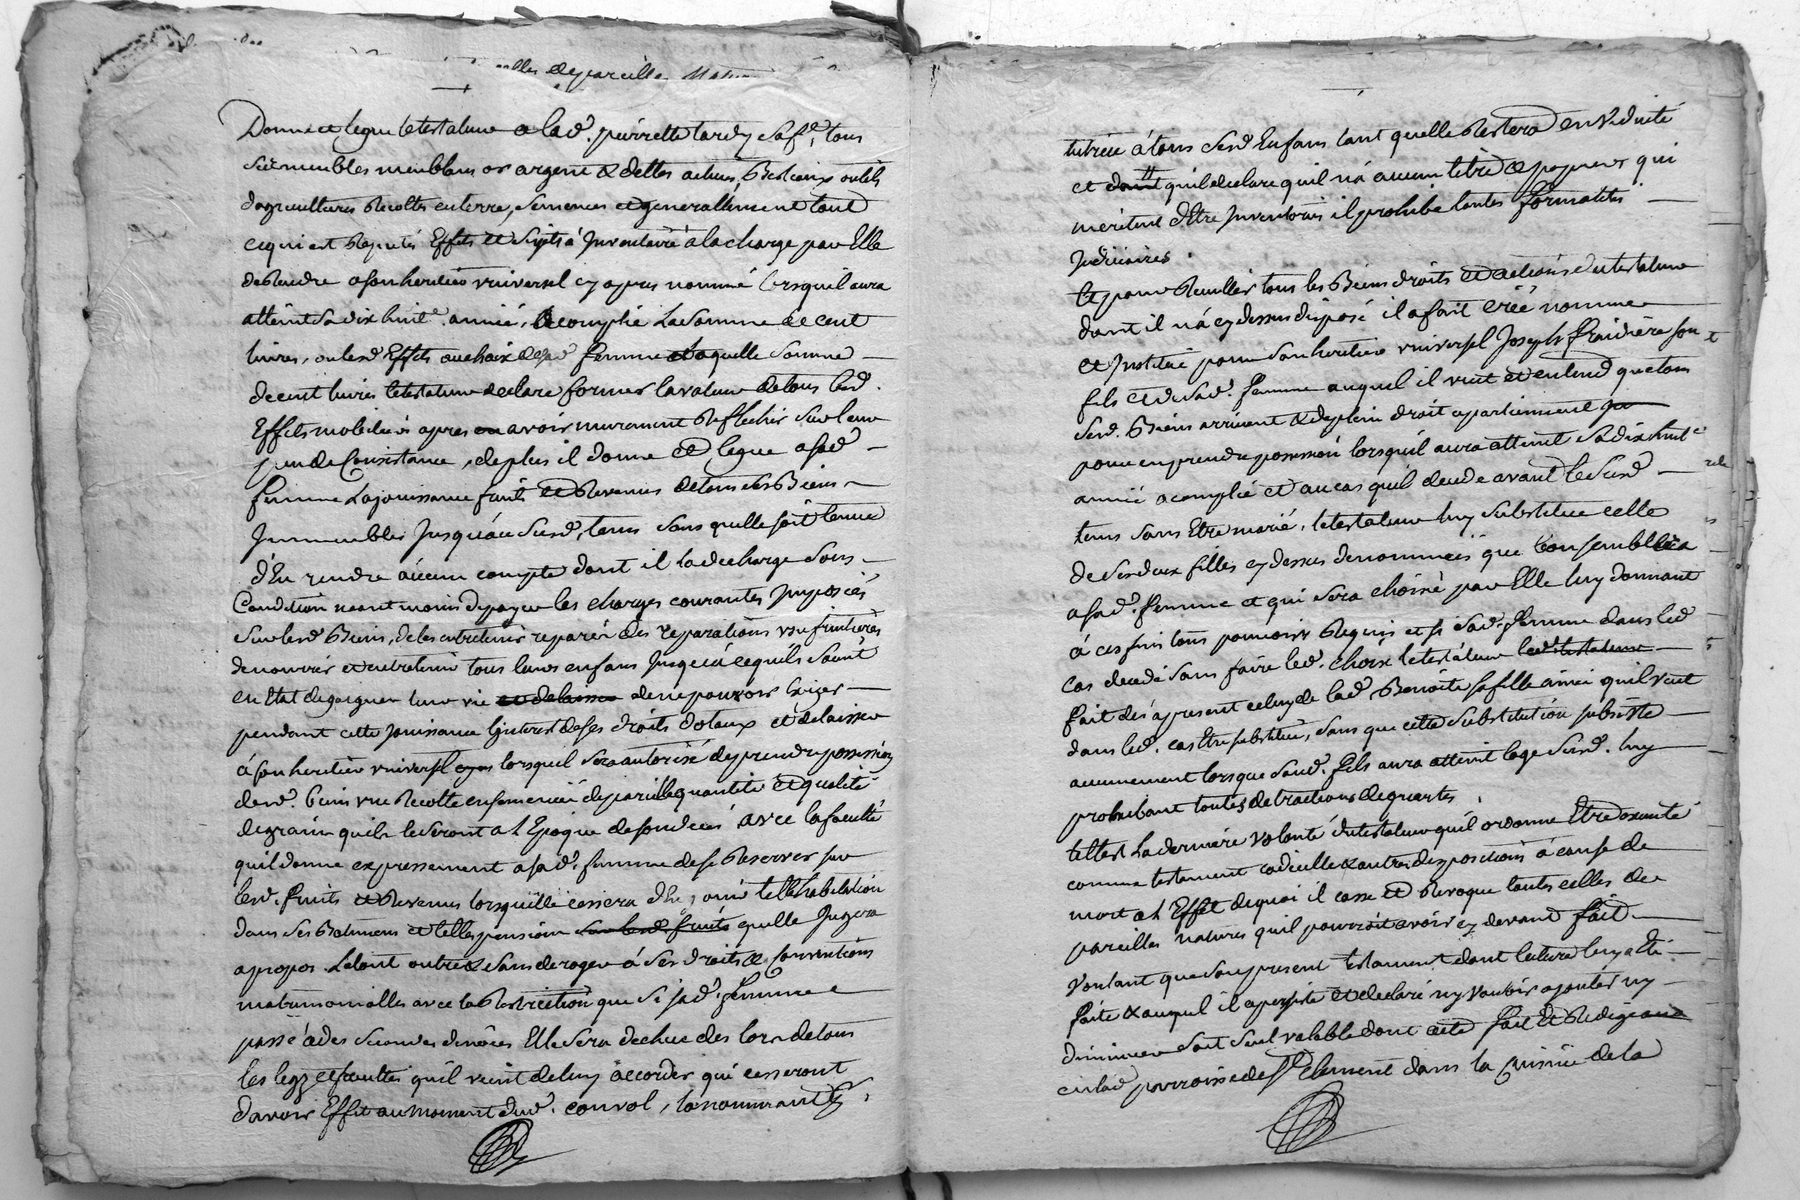 celles de pareille Natu
Donne et legue le testateur a lad. pierrette tardy sa fe, tous
ses meubles meublans or argent & dettes actives, Bestiaux outils
dagricultures Recoltes enterre, semences et generallement tout
cequi est Reputé Effets et Sujets á Inventaire á la charge par Elle
de Rendre a son heritier universel cy apres nommé lorsquil aura
atteint sa dix huite. année, Acomplie La somme de cent
livres, ou lesd Effets au choix desad femme et laquelle somme
de cent livres le testateur declare former la valeur de tous lesd.
Effets mobiliers apres en avoir murement Reflechis sur leur
peu de Consistance, de plus il donne et legue a sad
femme La jouissance fruits et Revenus de tous ses Biens
Immeubles jusquáu susd. tems sans quelle soit tenue
d'En rendre áucun compte dont il la decharge sous
Condition neantmoins de payer les charges courantes Imposées
sur lesd Biens, de les entretenir reparer des reparations usufruitieres
de nourrir et entretenir tous leurs enfans jusquá cequils soient
en Etat de gagner leur vie et de laisser de ne pouvoir Exiger
pendant cette jouissance L'interest de ses droits dotaux et de laisser
á son heritier universel lorsquil sera autorisé de prendre possession
desd. biens une Recolte ensemencée de pareille quantité et qualité
de grain quils le seront a l'Epoque de son decés avec la faculté
quil donne expressement a sad. femme de se Reserver sur
lesd. fruits et Revenus lorsquelle cessera d'En jouir telle habitation
dans ses Batimens et telles pension sur lesd. fruits quelle Jugera
apropos. Le tout outre & sans deroger á ses droits & conventions
matrimonialles avec la Restriction que si sad. femme
passé á des secondes denoces Elle sera dechue des lors de tous
les legs & facultes quil vient deluy accorder qui cesseront
davoir Effet au moment dud. convol, la nommant
tutrice á tous sesd Enfans tant quelle Restera en Viduité
et dautt quil declare quil ná aucun titre & papiers qui
meritent d'Etre Inventoriés il prohibe toutes formalités
Judiciaires.
Et pour Recuillir tous les Biens droits et actions du testateur
dont il ná cy dessus disposé il a fait créé nommé
et Institué pour son heritier universel Joseph fraidière son
fils et de sad. femme auquel il veut et entend que tous
sesd. Biens arrivent & de plein droit apartiennent
pour en prendre possession lorsquil aura atteint sa dix huite
année acomplie et au cas quil decede avant le susd
tems sans Etre marié, le testateur luy substitue celle
de ses deux filles cy dessus denommées que bon semblera
a sad. femme et qui sera choisie par Elle luy donnant
á ces fins tous pouvoirs Requis et si sad. femme dans led
cas decede sans faire led. choix le testateur led. testateur
fait des á present celuy de lad Benoite sa fille ainée quil veut
dans led. cas Etre substituée, sans que cette substitution subsiste
aucunement lorsque sond. fils aura atteint lage susd. luy
prohibant toutes detractions de quartes.
telle est La derniere Volonté du testateur quil ordonne Etre executé
comme testament codicille & autres dispositions á cause de
mort a l'Effet dequoi il casse et Revoque toutes celles de
pareilles natures quil pourroit avoir cy devant fait
Voulant que son present testament dont lecture luy a été
faite & auquel il a persisté et declaré ny vouloir ajouter ny
diminuer soit seul valable dont acte fait et Redigé
en lad parroisse de St clement dans la Cuisine de la